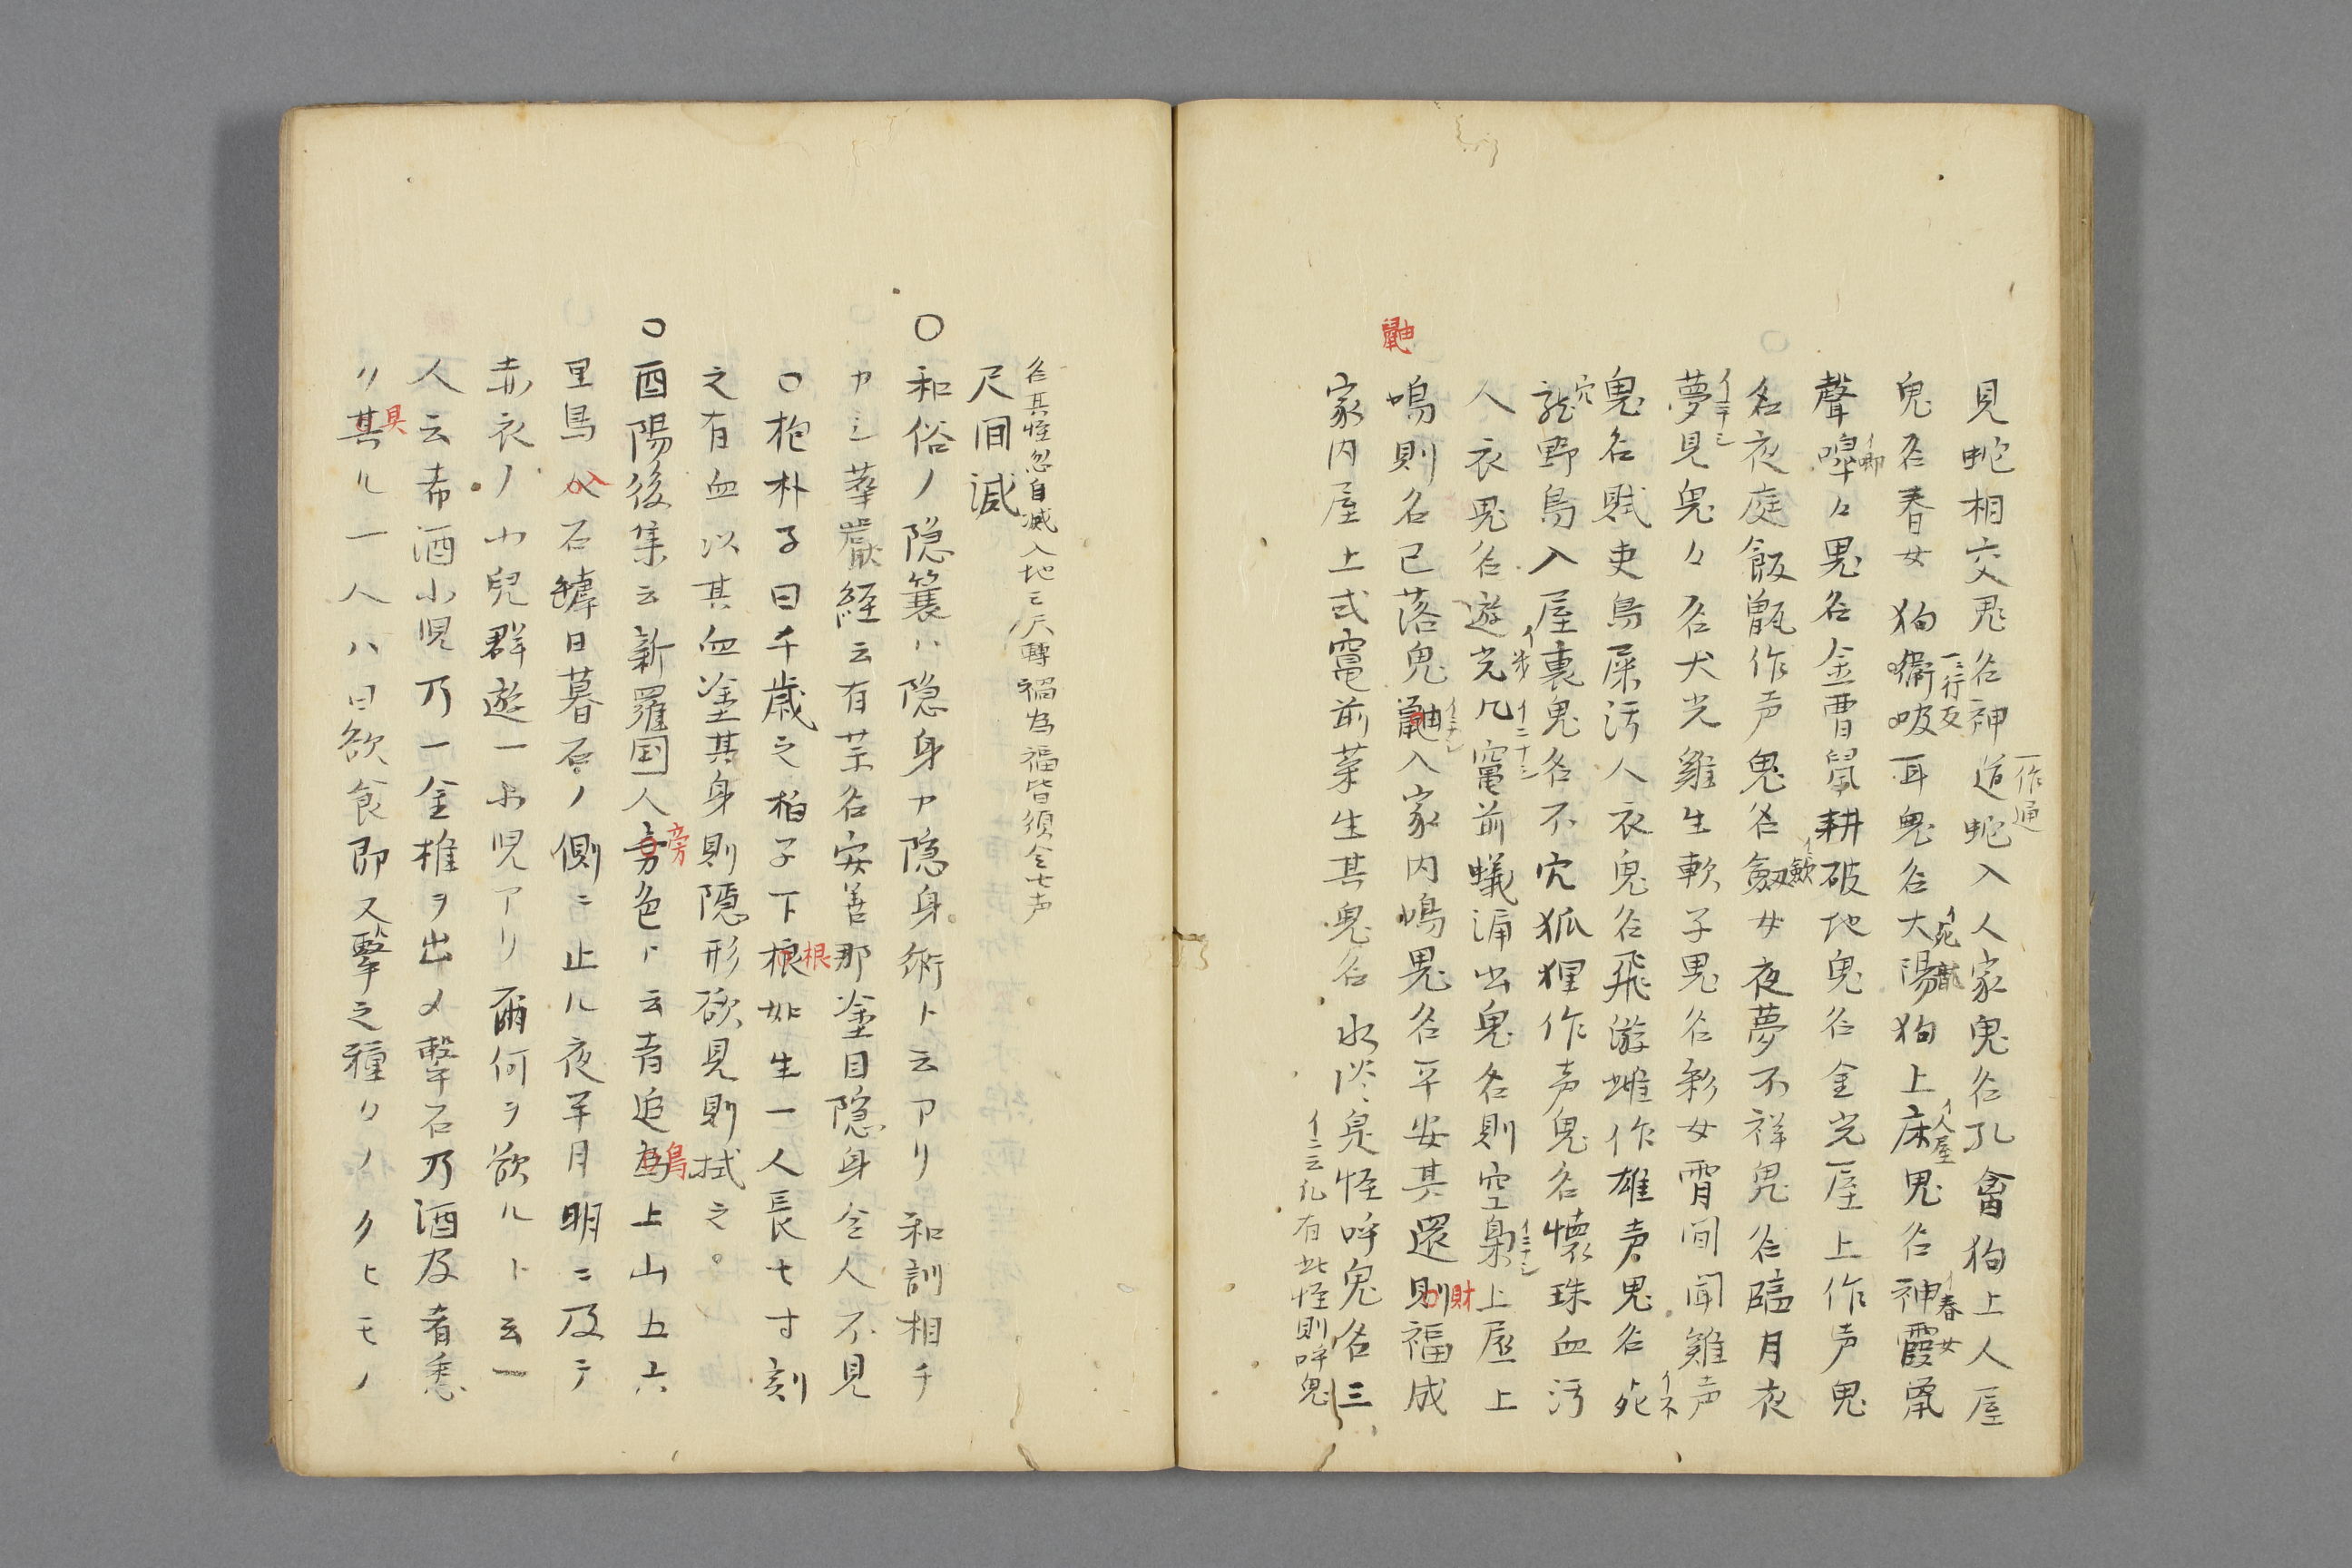 見蛇相交鬼名神道蛇入人家鬼名孔禽狗上人屋
一作通
鬼名春女狗嘯吱耳鬼名大陽狗上床鬼名神霞
聲嘷々鬼名金曹鼠耕破地鬼名金光屋上作声鬼
名夜庭飯甑作声鬼名女夜夢不祥鬼名臨月夜
夢見鬼々名犬光雞生軟子鬼名彩女霄間聞雞声
鬼名賦吏鳥屎汚人衣鬼名飛遊雌作雄声鬼名
野鳥入屋裏鬼名不穴狐狸作声鬼名懐珠血汚
人衣鬼名遊光几竈前蟻漏出鬼名則空梟上屋上
鳴則名已落鬼鼬入家内鳴鬼名平安其還則福成
財
家内屋上或竈前菜生其鬼名 是怪呼鬼名三
イニ云凡有此怪則呼鬼
名其怪忽自滅入地三尺轉禍為福皆須令七声
尺间滅
〇和俗ノ隠簑ハ隠身カ隠身術ト云アリ和訓相チ
カシ華嚴経云有薬名安善那塗目隠身令人不見
〇抱朴子曰千歳之栢子下根如生一人長七寸刻
根
之有血以其血塗其身則隠形欲見則拭之。
〇酉陽後集云新羅国人旁色ト云者追為上山五六
旁
里鳥入石罅日暮石ノ側ニ止ル夜半月明ニ及テ
赤衣ノ小兒群遊一小児アリ爾何ヲ欲ルト云一
人云希酒小児乃一金椎ヲ出メ撃石乃酒及肴悉
リ其ル一人ハ曰欲食即又撃之種々ノクヒモノ
具